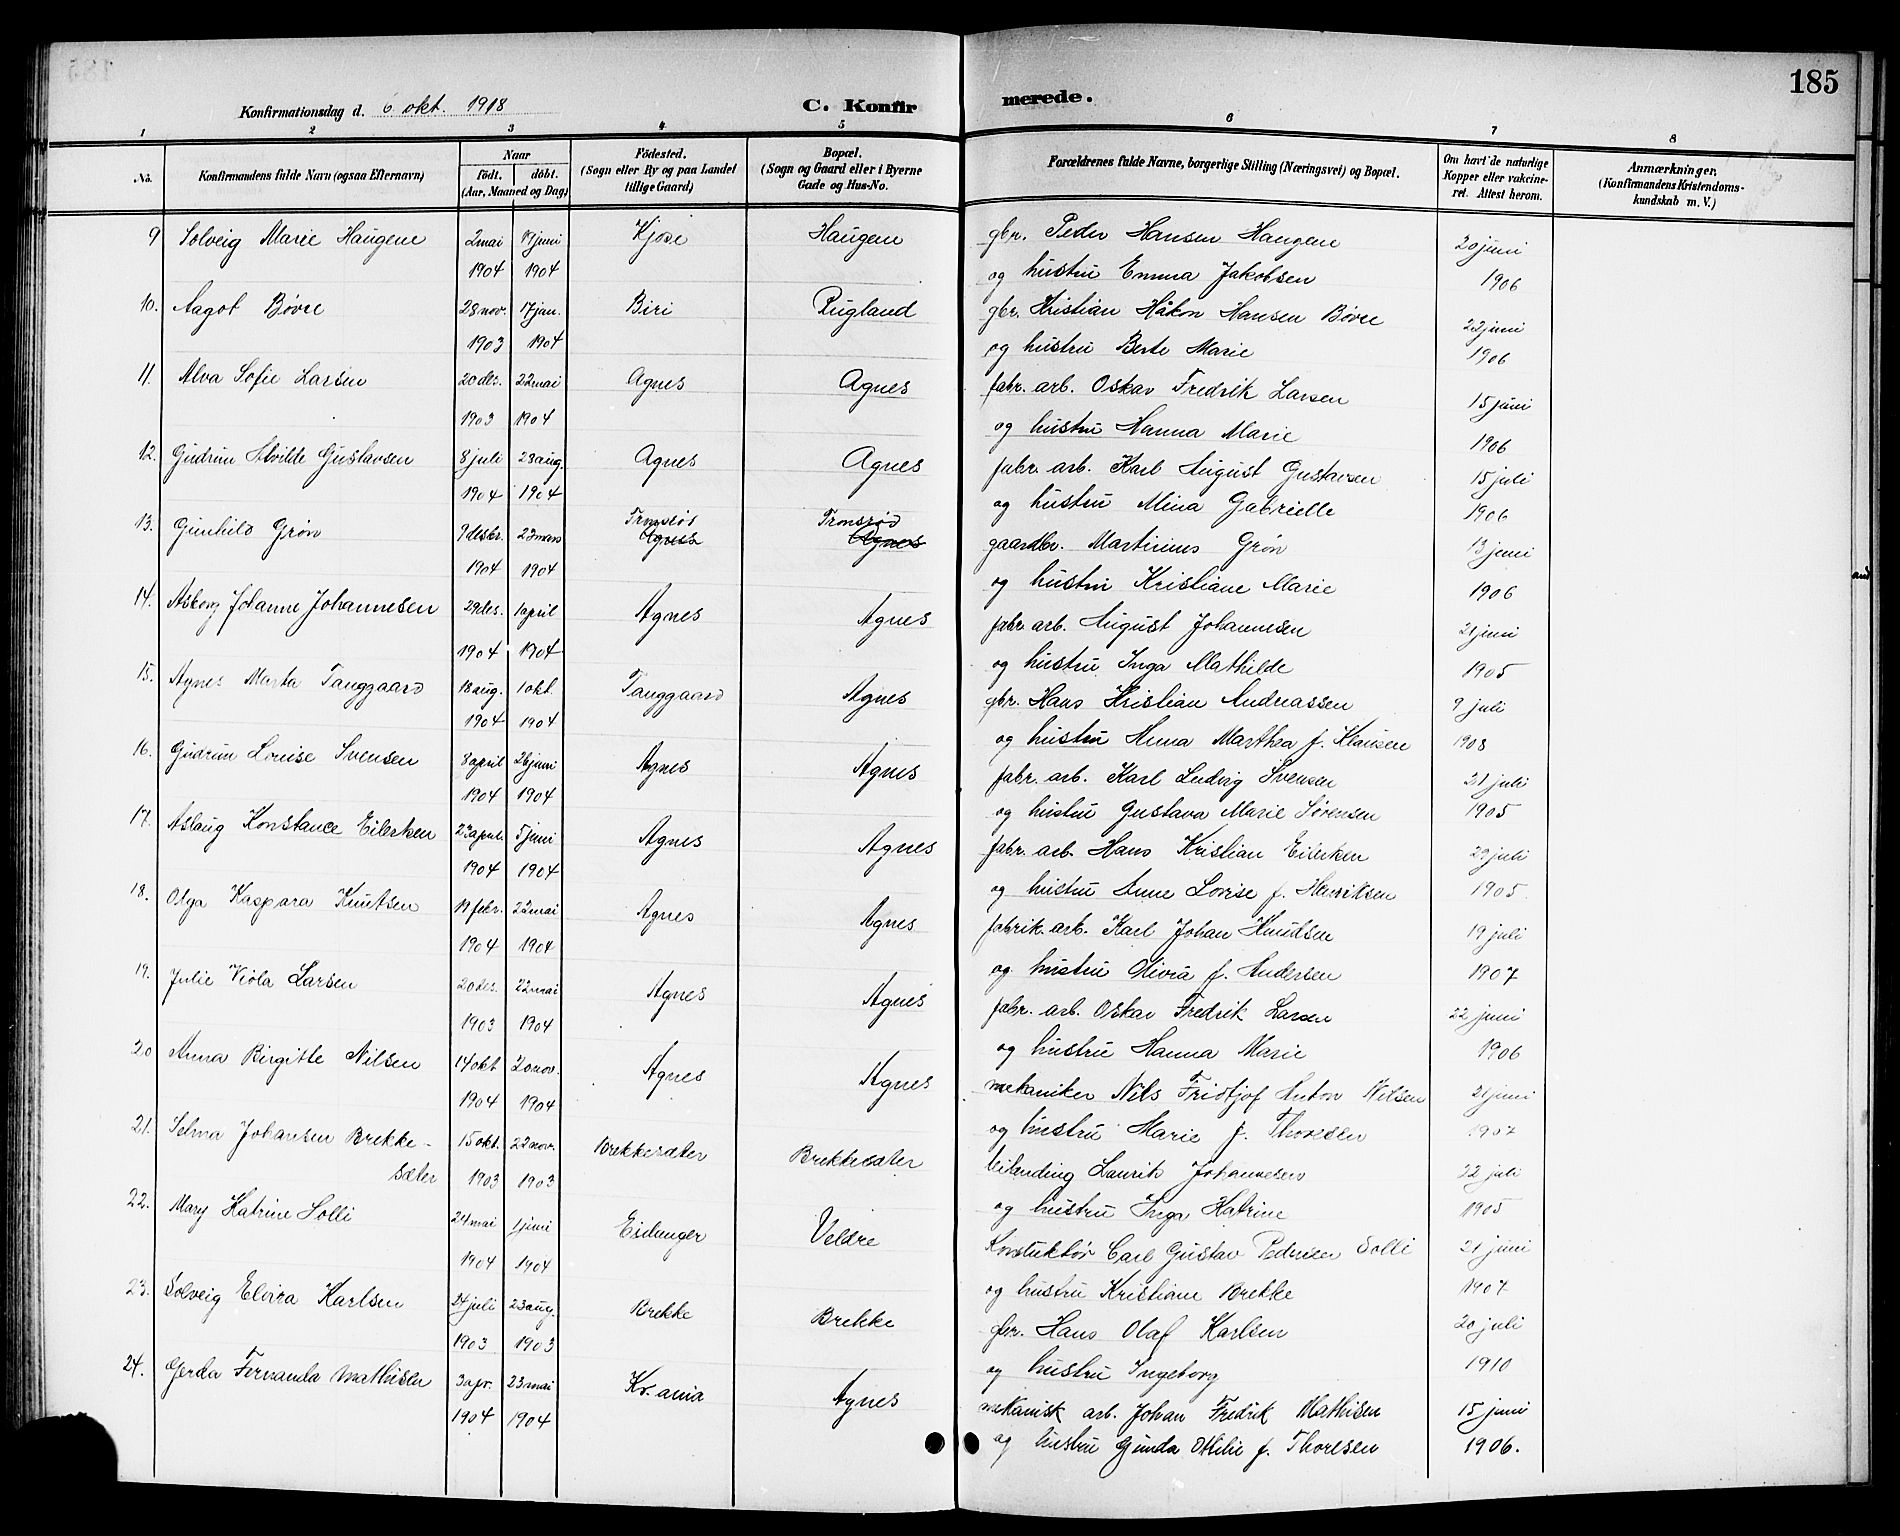 185
Konfirmationsdag d. 6 okt. 1918 C. Konfirmerede.
1 2 3 4 5 6 7 8
No. Konfirmandens fulde Navn (ogsaa Efternavn) Naar födt. döbt. (Aar, Maaned og Dag) Födested. (Sogn eller By og paa Landet tillige Gaard) Bopæl. (Sogn og Gaard eller i Byerne Gade og Hus-No. Forældrenes fulde Navne, borgerlige Stilling (Næringsvei) og Bopæl. Om havt de naturlige Kopper eller vakcineret. Attest herom. Anmærkninger. (Konfirmandens Kristendomskundskab m. V.)
9 Solveig Marie Haugene 2 mai 19 juni Kjose Haugene gbr. Peder Hansen Haugene 20 juni
1904 1904 og hustru Emma Jakobsen 1906
10. Aagot Bøvre 28 nov. 17 jan. Biri Rugland gbr. Kristian Håkon Hansen Bøvre 22 juni
1903 1904 og hustru Berte Marie 1906
11. Alva Sofie Larsen 20 des. 22 mai Agnes Agnes fabr. arb. Oskar Fredrik Larsen 15 juni
1903 1904 og hustru Hanna Marie 1906
12. Gudrun Alvilde Gustavsen 8 juli 23 aug. Agnes Agnes fabr. arb. Karl August Gustavsen 15 juli
1904 1904 og hustru Mina Gabrielle 1906
13. Gunhild Grøn 9 desbr. 23 mars Tronsrød Agnes Tronsrød Agnes gaardbr. Martinius Grøn 13 juni
1904 1904 og hustru Kristiane Marie 1906
14. Asborg Johanne Johannesen 29 des. 1 april Agnes Agnes fabr. arb. August Johannesen 21 juni
1904 1904 og hustru Inga Mathilde 1905
15. Agnes Marta Tanggaard 18 aug. 1 okt. Tanggaard Agnes gbr. Hans Kristian Andreassen 9 juli
1904 1904 og hustru Anna Marthea f. Klausen 1908
16. Gudrun Louise Svensen 8 april 26 juni Agnes Agnes fabr. arb. Karl Ludvig Svensen 21 juli
1904 1904 og hustru Gustava Marie Sørensen 1905
17. Aslaug Konstance Eilerken 23 april 5 juni Agnes Agnes fabr. arb. Hans Kristian Eilerken 29 juli
1904 1904 og hustru Anne Lovise f. Henriksen 1905
18. Olga Kaspara Knutsen 19 febr. 22 mai Agnes Agnes fabrik. arb. Karl Johan Knudsen 19 juli
1904 1904 og hustru Olivia f. Andersen 1907
19. Julie Viola Larsen 20 des. 22 mai Agnes Agnes fabr. arb. Oskar Fredrik Larsen 22 juni
1903 1904 og hustru Hanna Marie 1906
20 Anna Birgitte Nilsen 14 okt 20 nov. Agnes Agnes mekaniker Nils Fridtjof Anton Nilsen 21 juni
1904 1904 og hustru Marie f. Thoresen 1907
21. Selma Johansen Brekke- 15 okt. 22 nov. Brekkesæter Brekkesæter leilending Laurits Johannesen 22 juli
sæter 1903 1903 og hustru Inga Katrine 1905
22. Mary Katrine Solli 24 mai 1 juni Eidanger Veldre Konstuktør Carl Gustav Pedersen Solli 21 juni
1904 1904 og hustru Kristiane Brekke 1907
23. Solveig Elvira Karlsen 24 juli 23 aug. Brekke Brekke gbr. Hans Olaf Karlsen 20 juli
1903 1903 og hustru Ingeborg 1910
24. Gerda Fernanda Mathisen 3 apr. 23 mai Kr.ania Agnes mekanisk arb. Johan Fredrik Mathisen 15 juni
1904 1904 og hustru Gunda Otilie f. Thoresen 1906.